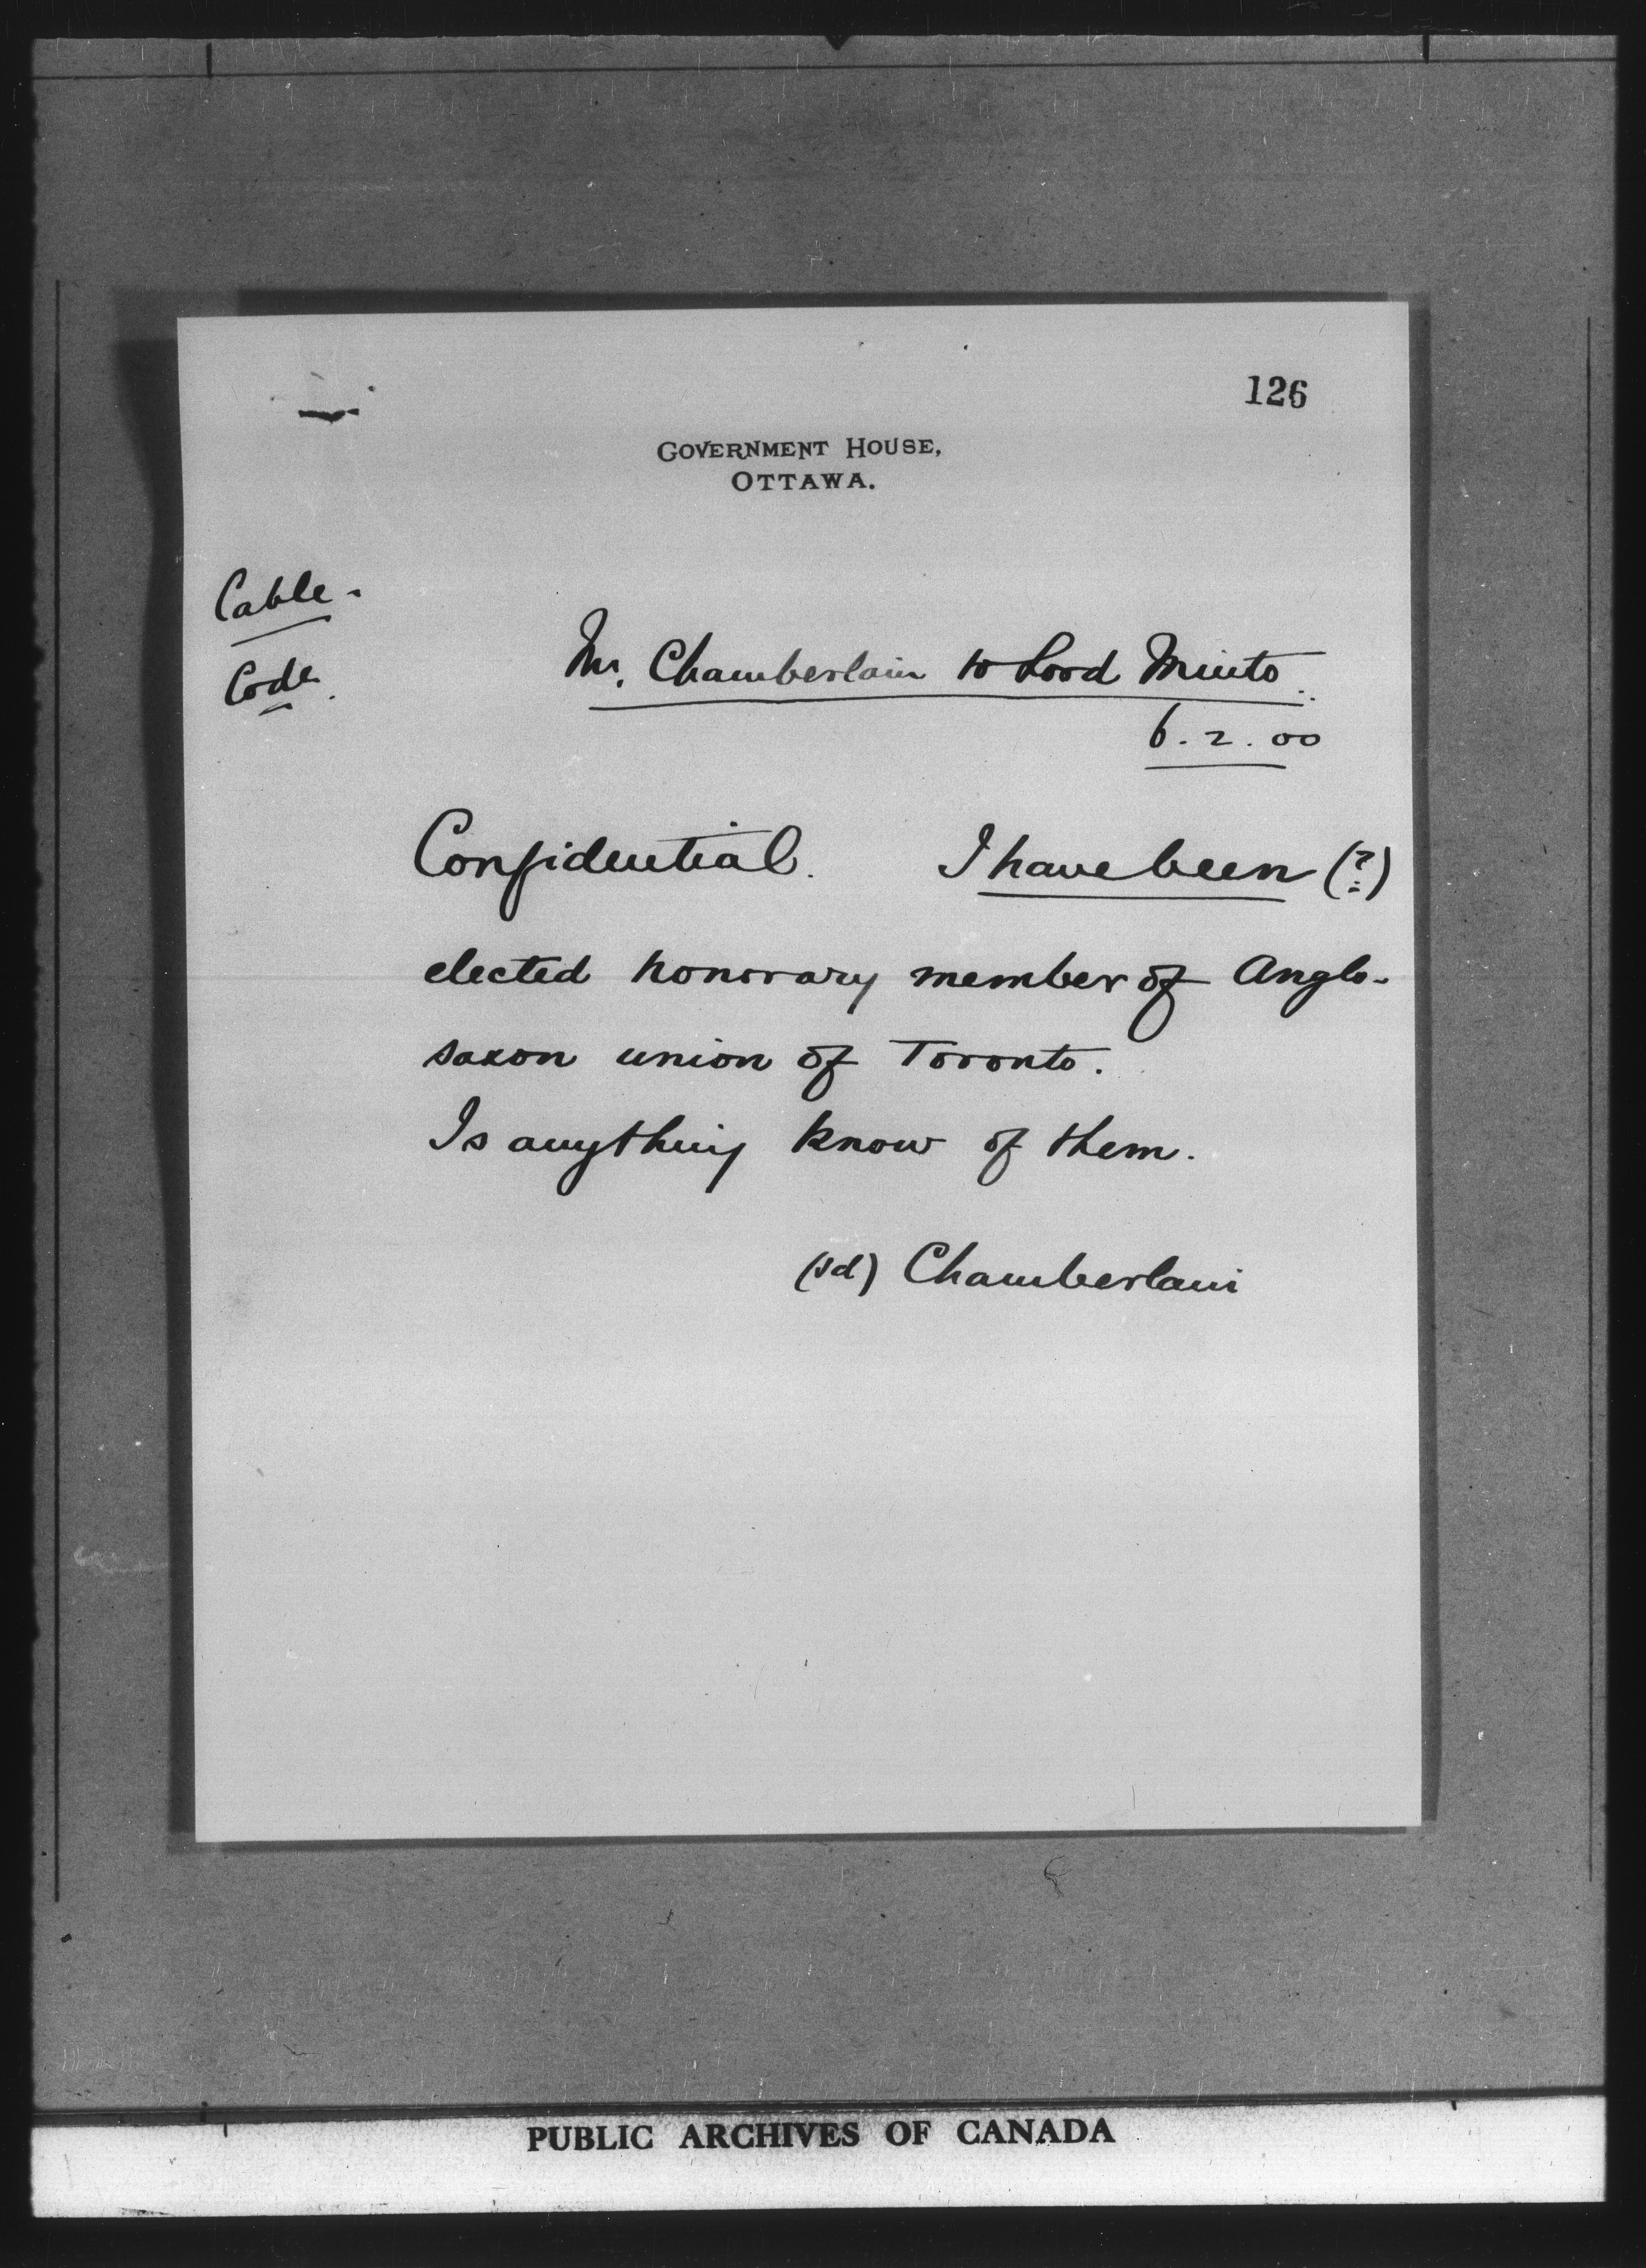 126
GOVERNMENT HOUSE,
OTTAWA.
Cable.
Code.
Mr. Chamberlain to Lord Minto.
6.2.00
Confidential. I have been (?)
elected honorary member of Anglo-
saxon union of Toronto.
Is anything know of them.
(sd) Chamberlain
PUBLIC ARCHIVES OF CANADA